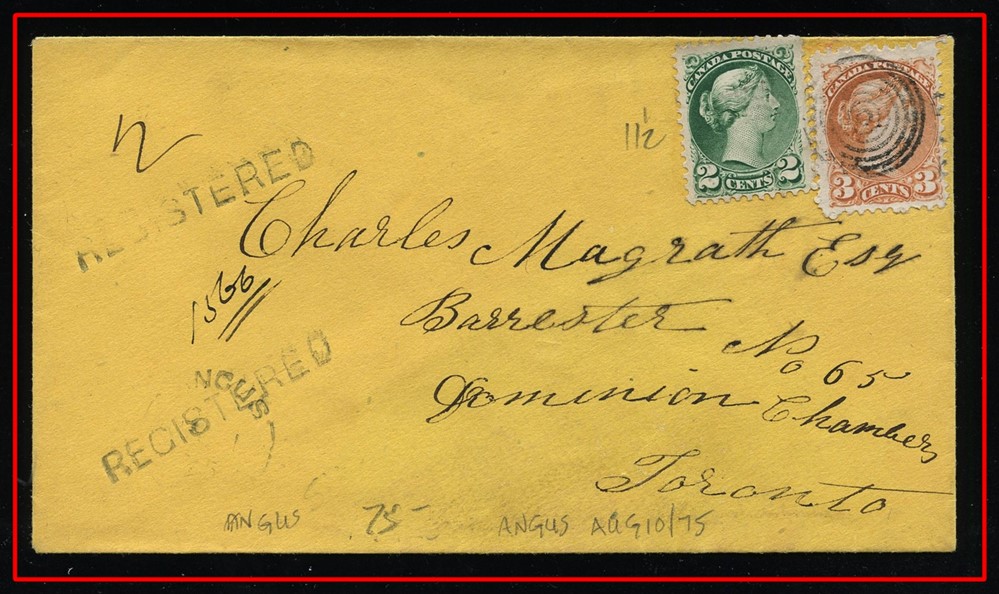 CANADA POSTAGE
2 CENTS 2
CANADA POSTAGE
3 CENTS 3
11½
REGISTERED
Charles Magrath Esq
1566
Barrester
No 65
REGISTERED
NGUS
Dominion Chambers
Toronto
ANGUS 75- ANGUS AUG 10/75